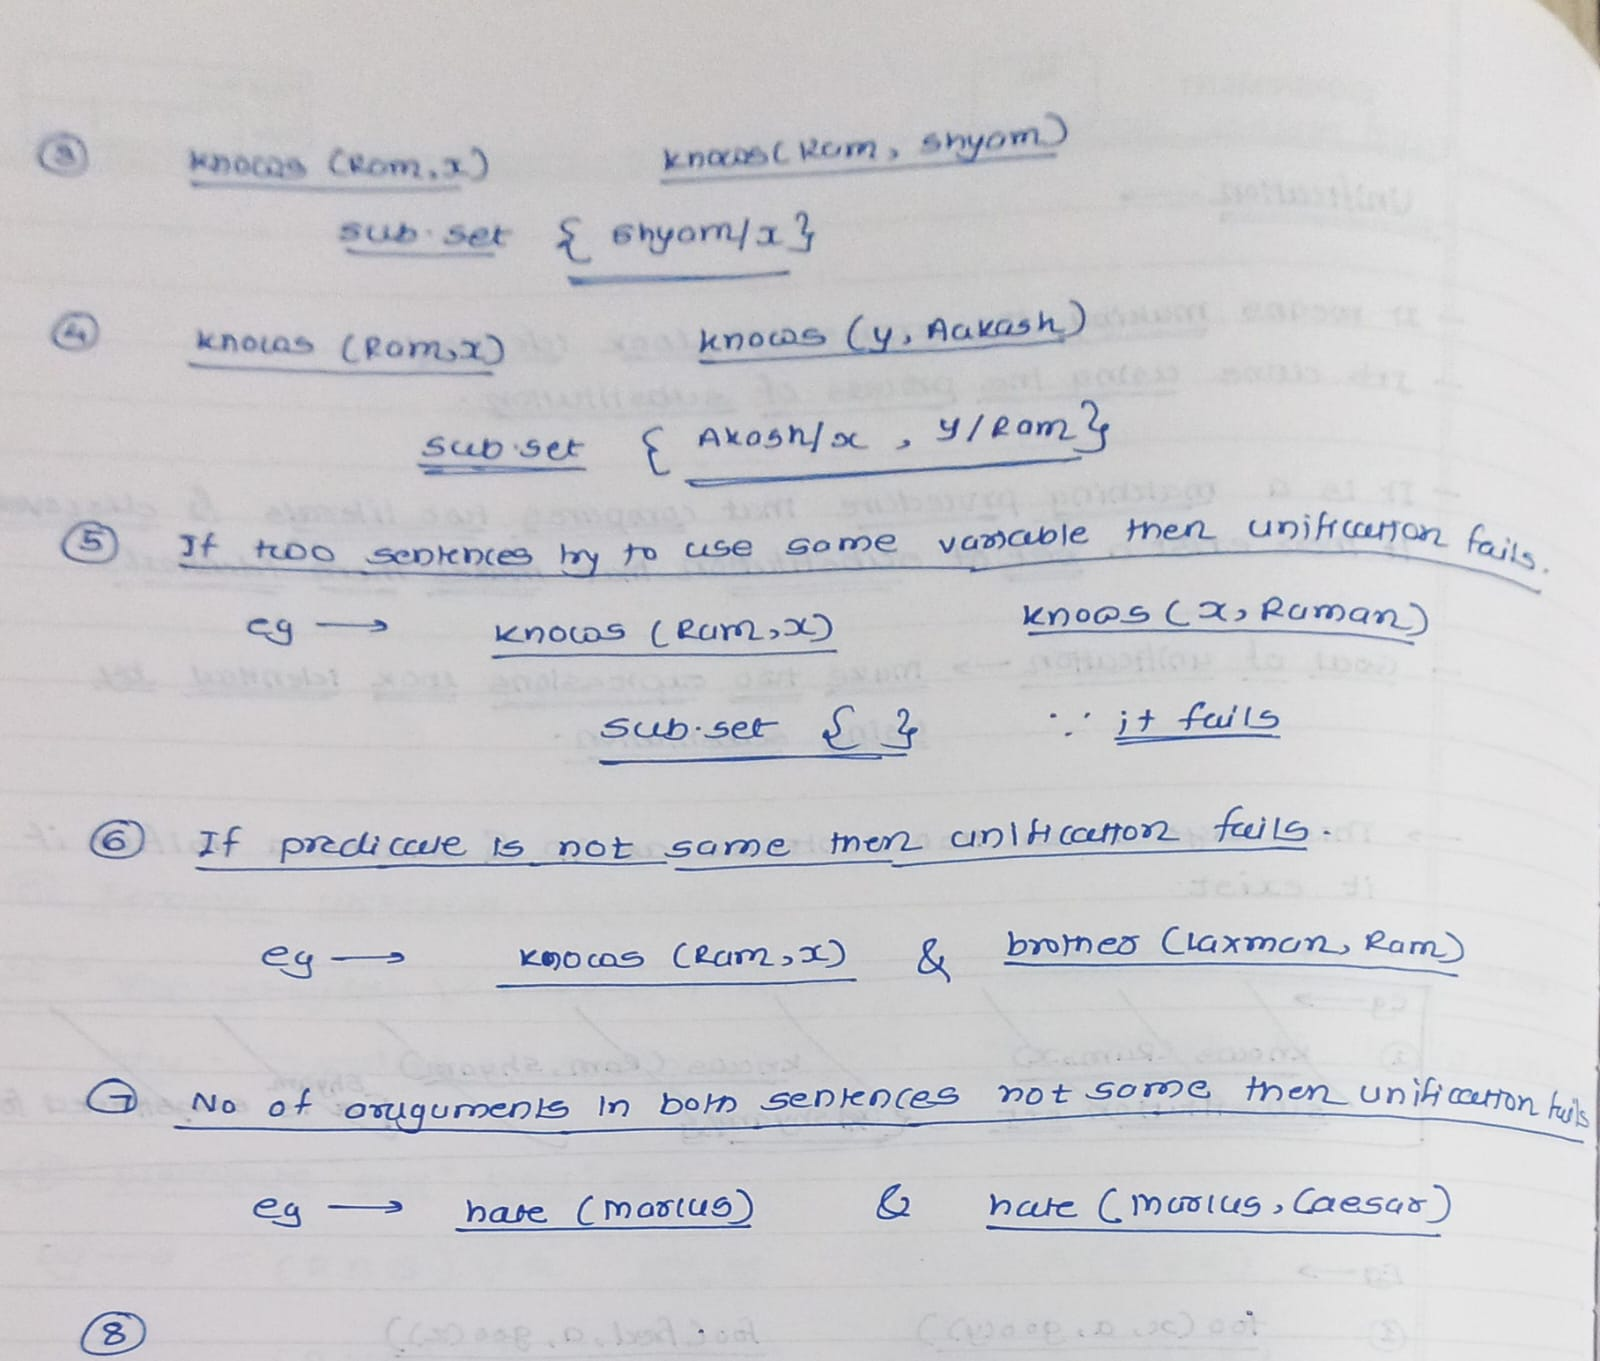 ③ knows (Ram, x) knows (Ram, Shyam)
sub. set { Shyam/x }
④ knows (Ram, x) knows (y, Aakash)
sub. set { Akash/x , y/Ram }
⑤ If two sentences try to use same variable then unification fails.
eg → knows (Ram, x) knows (x, Raman)
sub. set { } ∵ it fails
⑥ If predicate is not same then unification fails.
eg → knows (Ram, x) & brother (Laxman, Ram)
⑦ No of aruguments in both sentences not same then unification fails
eg → hate (Marcus) & hate (Marcus, Caesar)
⑧